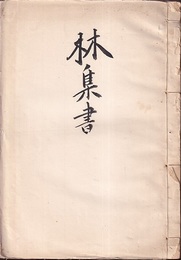 林集書